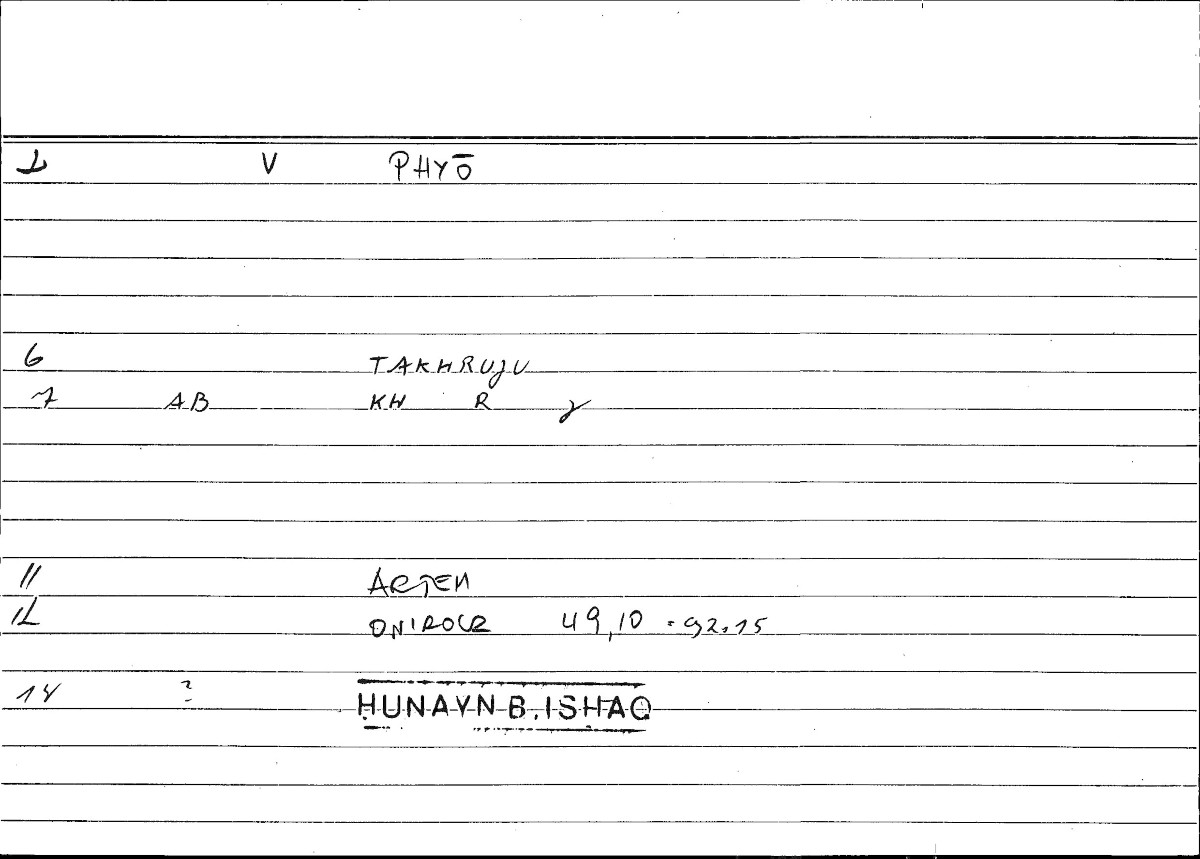 1 V PHYŌ
6 TAKHRUJU
7 AB KH R J
11 ARTEM
12 ONIROCR 49,10 = 92.15
14 ? HUNAYN B. ISHAQ